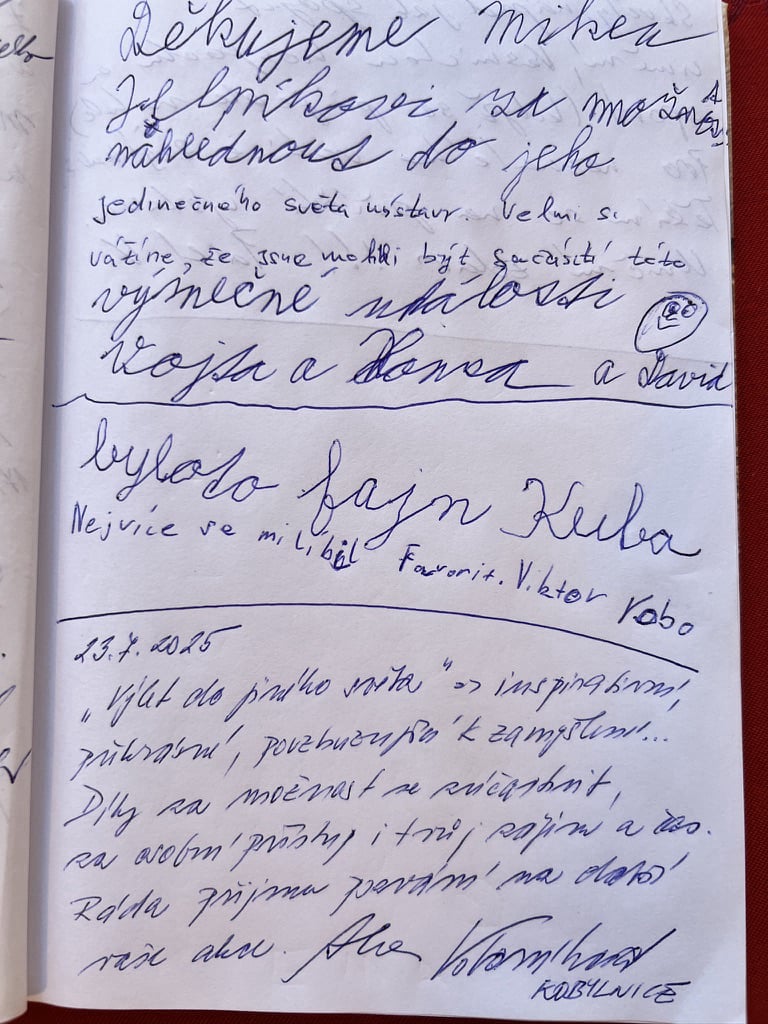 Děkujeme Mikeu
Jelníkovi za možnos
náhlédnout do jeho
jedinečného světa výstavy. Velmi si
vážíme, že jsme mohli být součástí této
výjmečné události
Vojta a Honza a David
byloto fajn Kuba
Nejvíce se mi líbil Favorit. Viktor Vobo
23.7.2025
„Výlet do jiného světa" => inspirativní,
překrásné, povzbuzující k zamyšlení...
Díky za možnost se zúčastnit,
za osobní přístup i tvůj zájem a čas.
Ráda přijmu pozvání na další
vaše akce.
KOBYLNICE